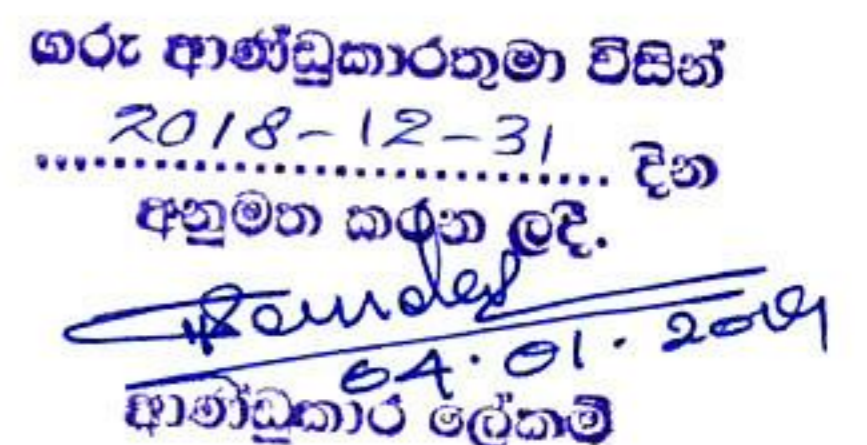 ගරු ආණ්ඩුකාරතුමා විසින්
2018-12-31
.................................. දින
අනුමත කරන ලදී.
04.01.2019
ආණ්ඩුකාර ලේකම්